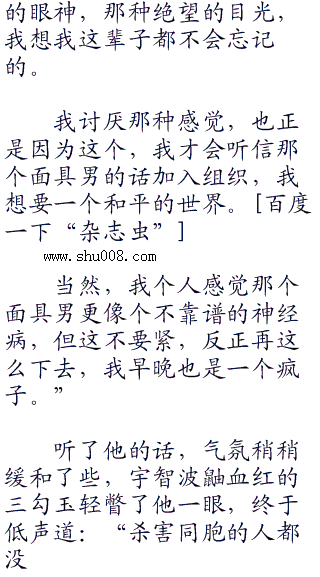 的眼神，那种绝望的目光，
我想我这辈子都不会忘记
的。
我讨厌那种感觉，也正
是因为这个，我才会听信那
个面具男的话加入组织，我
想要一个和平的世界。[百度
一下“杂志虫”]
www.shu008.com
当然，我个人感觉那个
面具男更像个不靠谱的神经
病，但这不要紧，反正再这
么下去，我早晚也是一个疯
子。”
听了他的话，气氛稍稍
缓和了些，宇智波鼬血红的
三勾玉轻瞥了他一眼，终于
低声道：“杀害同胞的人都
没